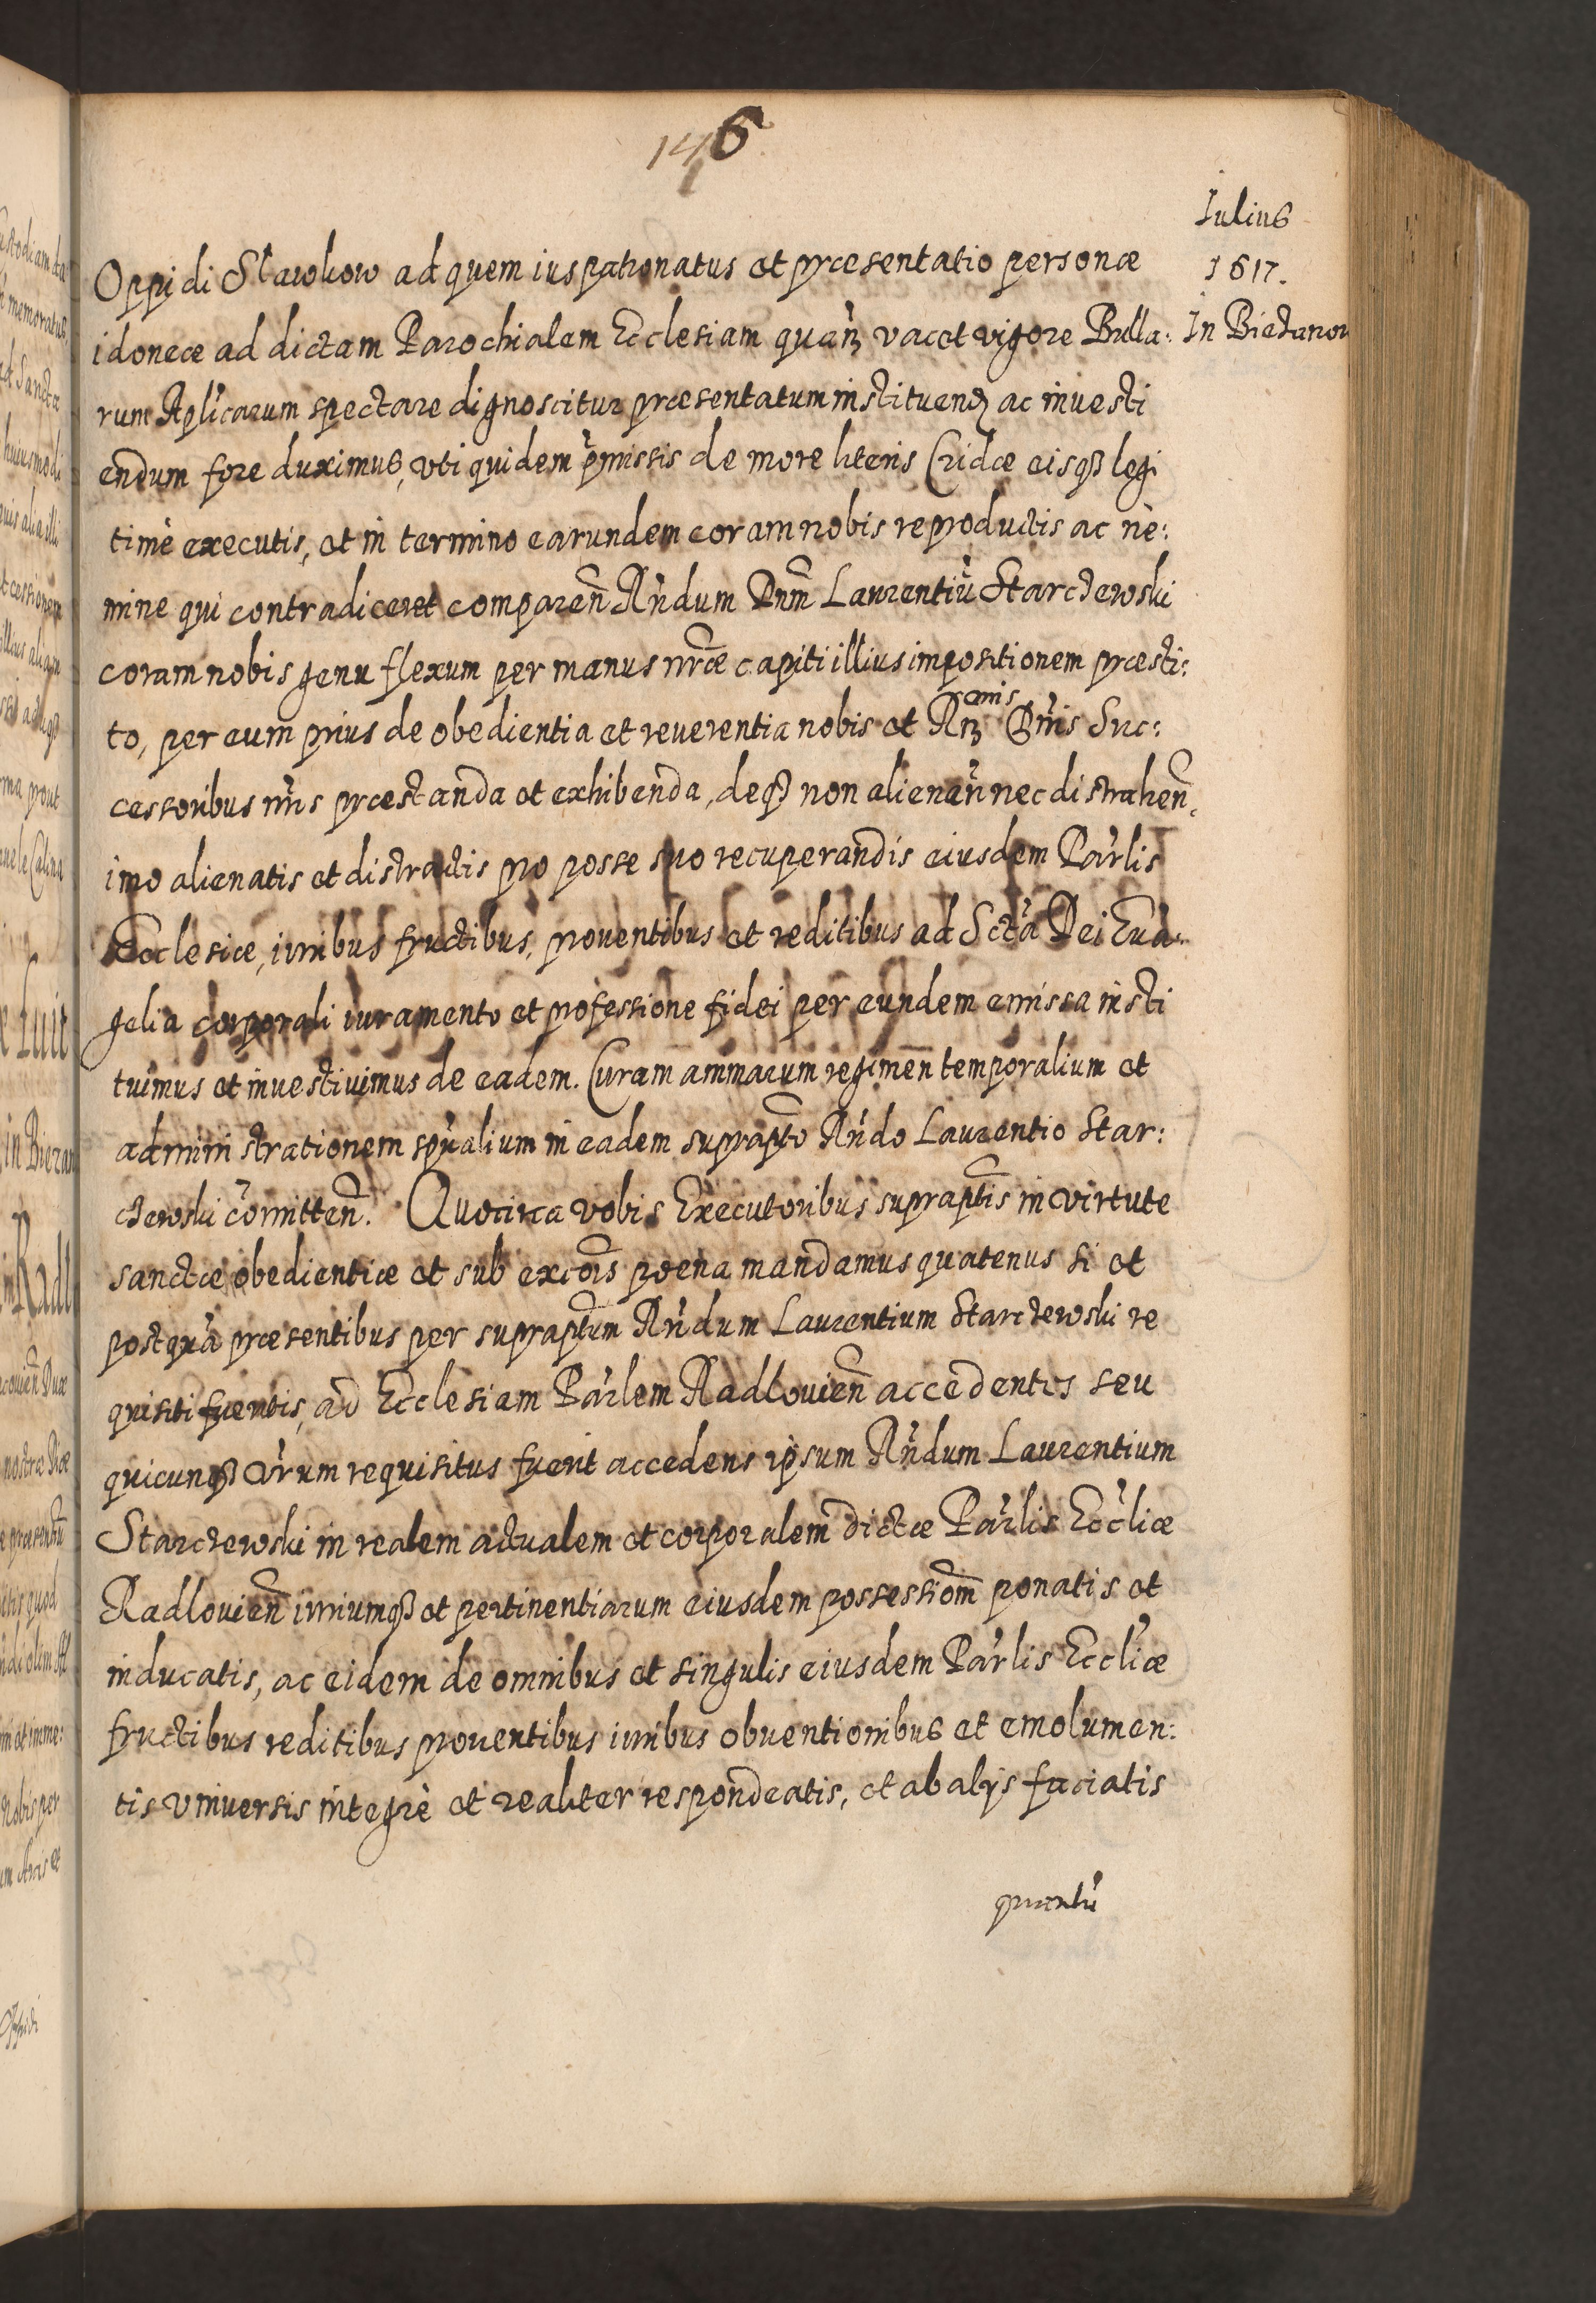 146
Iulius
1617.
In Biezanow
Oppidi Slawkow ad quem ius patronatus et præsentatio personæ
idoneæ ad dictam Parochialem Ecclesiam quañz vacet vigore Bulla:
rum Aplicarum spectare dignoscitur præsentatum instituendz ac inuesti
endum fore duximus, vti quidem pmissis de more literis Cridæ eisqz legi
timè executis, et in termino earundem coram nobis reproductis ac ne:
mine qui contradiceret compareñ Rndum Dnm Laurentiũ Starczewski
coram nobis genu flexum per manus nræ capiti illius impositionem præsti:
to, per eum prius de obedientia et reuerentia nobis et Rmis Dnis Suc:
cessoribus nris præstanda et exhibenda, deqz non alienañ nec distraheñ
imo alienatis et distractis pro posse suo recuperandis eiusdem Parlis
Ecclesiæ, iuribus fructibus, prouentibus et reditibus ad Sctã Dei Euã:
gelia corporali iuramento et professione fidei per eundem emissa insti
tuimus et inuestiuimus de eadem. Curam animarum regimen temporalium et
administrationem spualium in eadem suprapto Rndo Laurentio Star:
czewski comitteñ. Quocirca vobis Executoribus supraptis in virtute
sanctæ obedientiæ et sub excois poena mandamus quatenus si et
postquã præsentibus per supraptum Rndum Laurentium Starczewski re
quisiti fueritis, ad Ecclesiam Parlem Radlouieñ accedentes seu
quicunqz vrum requisitus fuerit accedens ipsum Rndum Laurentium
Starczewski in realem actualem et corporalem dictæ Parlis Eccliæ
Radlouieñ iuriumqz et pertinentiarum eiusdem possessiom ponatis et
inducatis, ac eidem de omnibus et singulis eiusdem Parlis Eccliæ
fructibus reditibus prouentibus iuribus obuentionibus et emolumen:
tis vniuersis integrè et realiter respondeatis, et ab alijs faciatis
quantũ